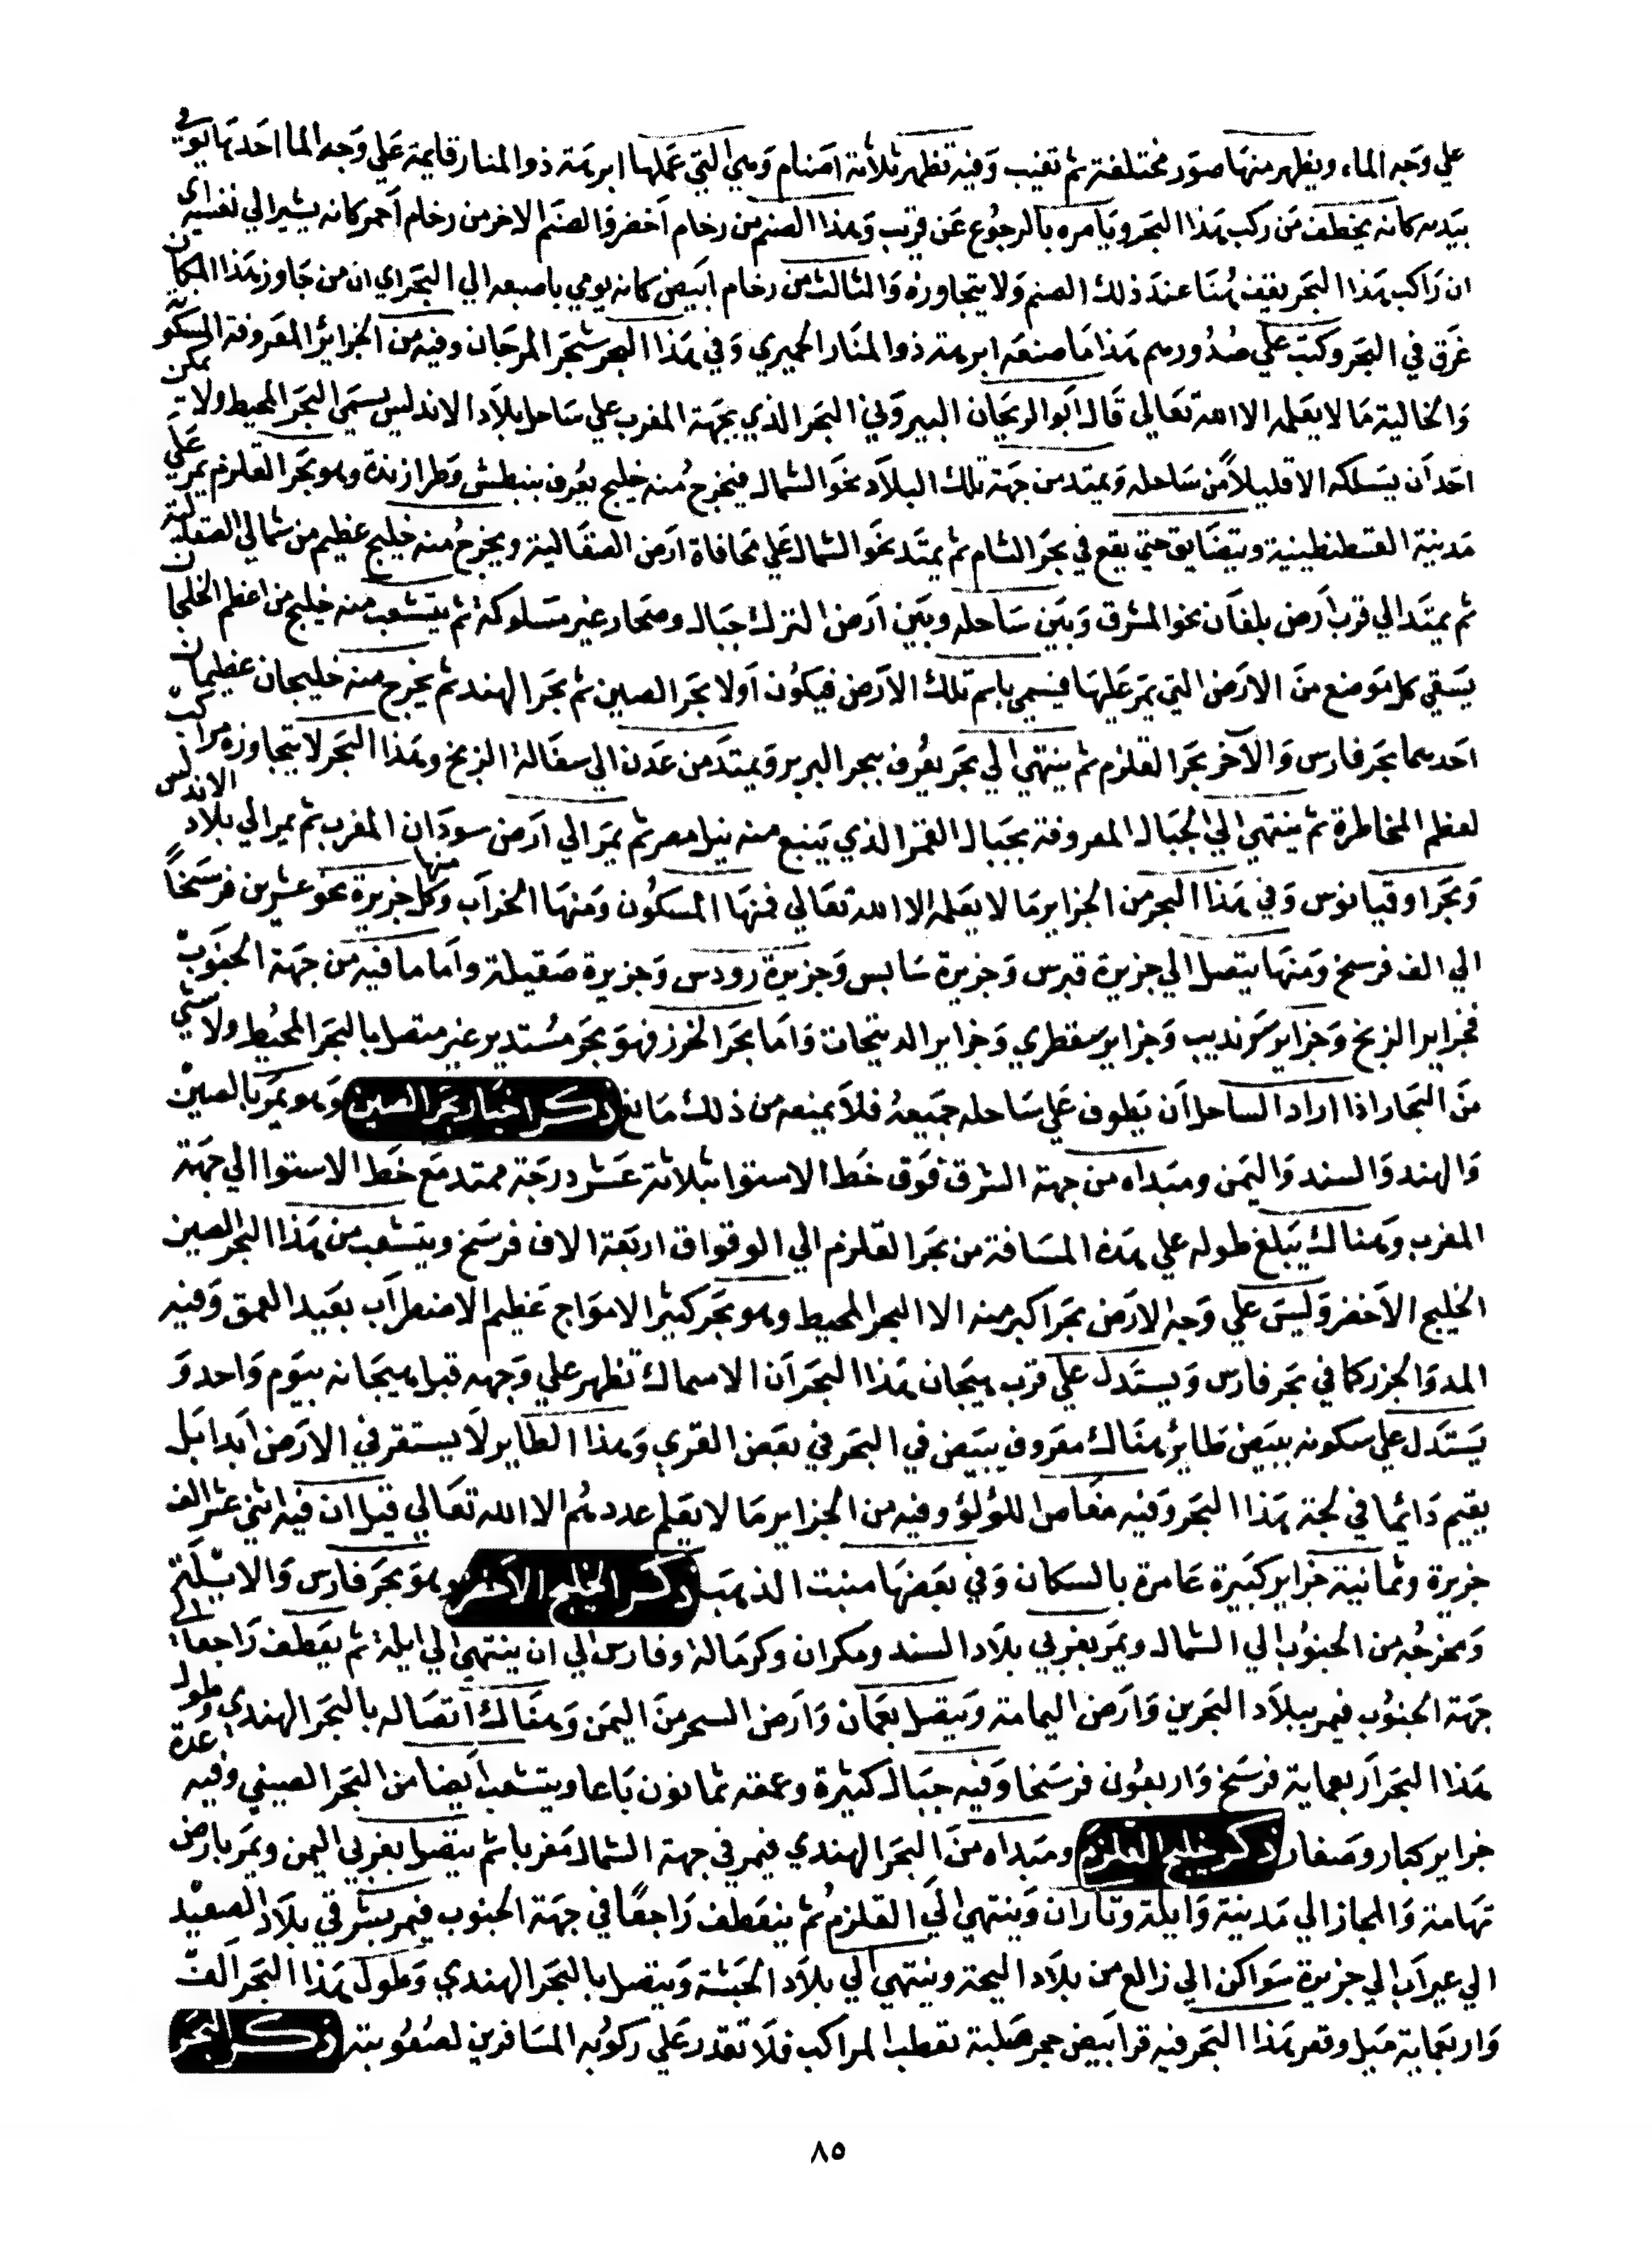 علي وجه الماء ويظهر منها صور مختلفة ثم تغيب وفيه تظهر ثلاثة اصنام وهي التي عملها ابرهة ذوالمنار قايمة علي وجه الما احدها يومي
بيده كانه يخطف من ركب هذا البحر ويامره بالرجوع عن قريب وهذا الصنم من رخام اخضر والصنم الاخر من رخام احمر كانه يشير الي نفسه اي
ان راكب هذا البحر يقف هنا عند ذلك الصنم ولا يتجاوزه والثالث من رخام ابيض كانه يومي باصبعه الي البحر اي ان من جاوز هذا المكان
غرق في البحر وكتب علي صدورهم هذا ما صنعه ابرهة ذوالمنار الحميري وفي هذا البحر شجر المرجان وفيه من الجزاير المعروفة المسكونة
والخالية ما لا يعلمه الا الله تعالي قال ابوالريحان البيروني البحر الذي بجهة المغرب علي ساحل بلاد الاندلس يسمي البحر المحيط ولا يمكن
احدا ان يسلكه الا قليلا من ساحله ويمتد من جهة تلك البلاد نحو الشمال فيخرج منه خليج يعرف ببنطش وطرازندة وهو بحر القلزم يمر علي
مدينة القسطنطينية ويتضايق حتي يقع في بحر الشام ثم يمتد نحو الشمال علي محاذاة ارض الصقالية ويخرج منه خليج عظيم من شمالي الصقلية
ثم يمتد الي قرب ارض بلغان نحو المشرق وبين ساحله وبين ارض الترك جبال وصحار غير مسلوكة ثم يتشعب منه خليج من اعظم الخلجان
يسقي كل موضع من الارض التي يمر عليها فيسمي باسم تلك الارض فيكون اولا بحر الصين ثم بحر الهند ثم يخرج منه خليجان عظيمان
احدهما بحر فارس والآخر بحر القلزم ثم ينتهي الي بحر يعرف ببحر البربر ويمتد من عدن الي سفالة الزنج وهذا البحر لا يتجاوزه مراكب
لعظم المخاطرة ثم ينتهي الي الجبال المعروفة بجبال القمر الذي ينبع منه نيل مصر ثم يمر الي ارض سودان المغرب ثم يمر الي بلاد الاندلس
وبحر اوقيانوس وفي هذا البحر من الجزاير ما لا يعلمه الا الله تعالي فمنها المسكون ومنها الخراب وكل جزيرة منها نحو عشرين فرسخا
الي الف فرسخ ومنها يتصل الي جزيرة قبرس وجزيرة سابس وجزيرة رودس وجزيرة صقيلة واما ما فيه من جهة الجنوب
فجزاير الزنج وجزاير سرنديب وجزاير سقطري وجزاير الديبجات واما بحر الخزر فهو بحر مستدير غير متصل بالبحر المحيط ولا شي
من البحار اذا اراد الساحل ان يطوف علي ساحله جميعه فلا يمنعه من ذلك مانع ذكر اخبار بحر الصين وهو يمر بالصين
والهند والسند واليمن ومبداه من جهة الشرق فوق خط الاستوا بثلاثة عشر درجة ممتد مع خط الاستوا الي جهة
المغرب وهناك يبلغ طوله علي هذه المسافة من بحر القلزم الي الوقواق اربعة الاف فرسخ ويتشعب من هذا البحر الصين
الخليج الاخضر وليس علي وجه الارض بحر اكبر منه الا البحر المحيط وهو بحر كثير الامواج عظيم الاضطراب بعيد العمق وفيه
المد والجزر كما في بحر فارس ويستدل علي قرب هيجان هذا البحر ان الاسماك تظهر علي وجهه قبل هيجانه بيوم واحد و
يستدل علي سكونه ببيض طاير هناك معروف يبيض في البحر في بعض القري وهذا الطاير لا يستقر في الارض ابدا بل
يقيم دائما في لجة هذا البحر وفيه مغاص اللولؤ وفيه من الجزاير ما لا يعلم عددهم الا الله تعالي قيل ان فيه اثني عشر الف
جزيرة وثمانية جزاير كبيرة عامرة بالسكان وفي بعضها منبت الذهب ذكر الخليج الاخضر وهو بحر فارس والابلة
ومخرجه من الجنوب الي الشمال ويمر بغربي بلاد السند ومكران وكرمالة وفارس الي ان ينتهي الي ايلة ثم يعطف راجعا الي
جهة الجنوب فيمر ببلاد البحرين وارض اليمامة ويتصل بعمان وارض السحر من اليمن وهناك اتصاله بالبحر الهندي وطول
هذا البحر اربعماية فرسخ واربعون فرسخا وفيه جبال كثيرة وعمقه ثمانون باعا ويتشعب ايضا من البحر الصيني وفيه عدة
جزاير كبار وصغار ذكر خليج القلزم ومبداه من البحر الهندي فيمر في جهة الشمال مغربا ثم يتصل بغربي اليمن ويمر بارض
تهامة والحجاز الي مدينة وايلة وتاران وينتهي الي القلزم ثم ينعطف راجعا في جهة الجنوب فيمر بشرقي بلاد الصعيد
الي عيراب الي جزيرة سواكن الي زالع من بلاد البجة وينتهي الي بلاد الحبشة ويتصل بالبحر الهندي وطول هذا البحر الف
واربعماية ميل وقعر هذا البحر فيه قرا بيض حجر صلبة تعطب المراكب فلا تقدر علي ركوبه المسافرين لصعوبته ذكر البحر
٨٥